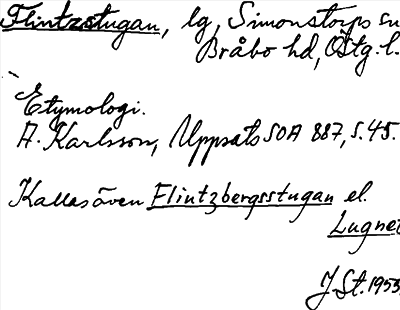 Flintzstugan, lg, Simonstorps sn
Bråbo hd, Östg. l.
Etymologi.
A. Karlsson, Uppsats SOA 887, s. 45.
Kallas även Flintzbergsstugan el.
Lugnet
J. St. 1953